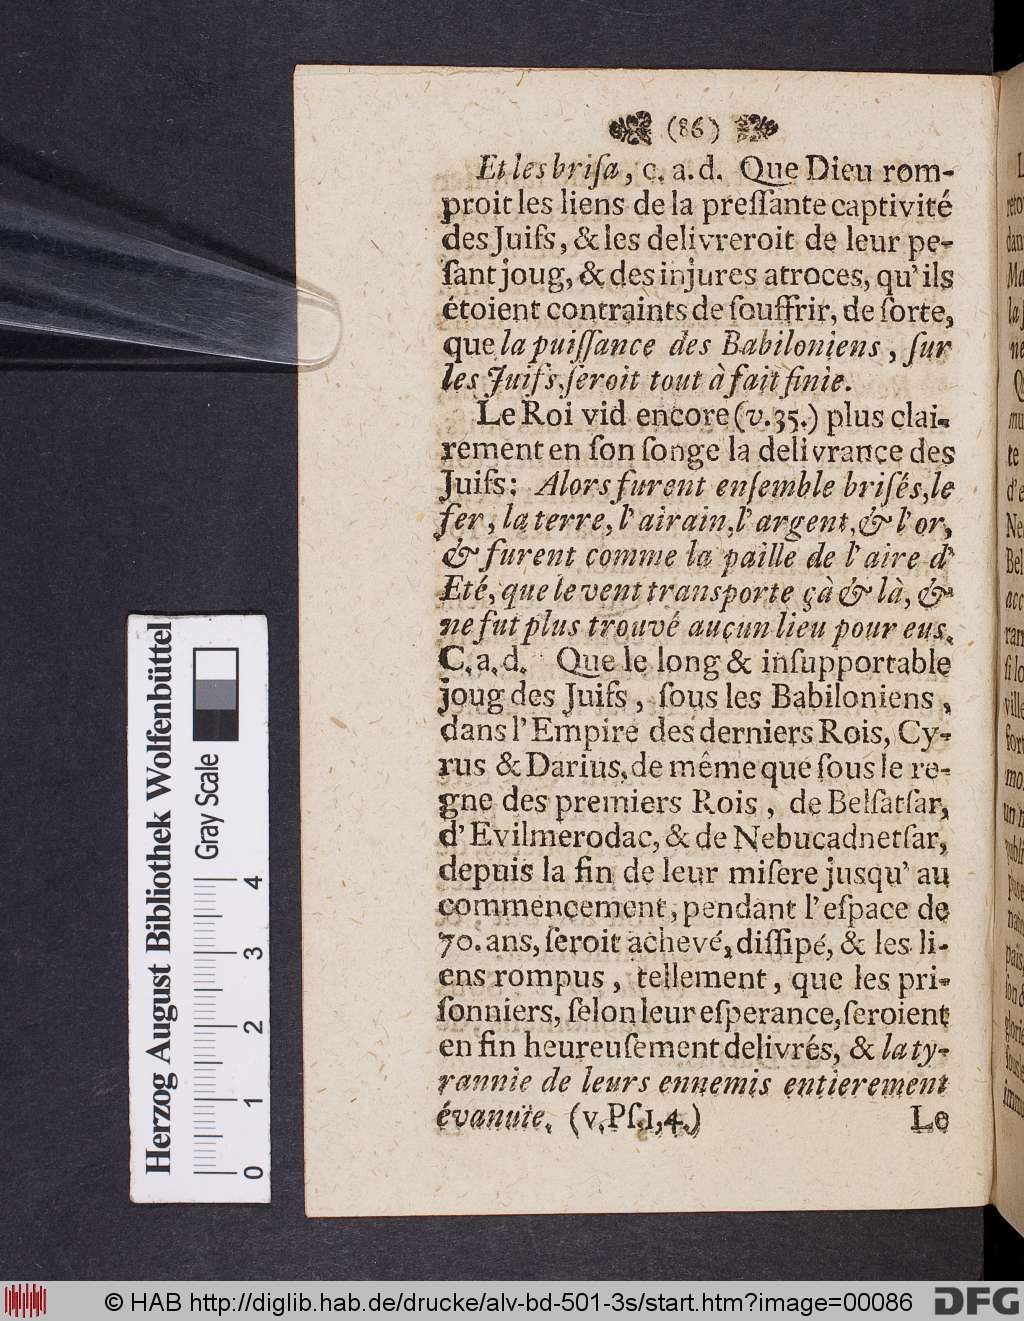 (86)
Et les briſa, c. a. d. Que Dieu rom-
proit les liens de la preſſante captivité
des Juifs, & les delivreroit de leur pe-
ſant joug, & des injures atroces, qu' ils
étoient contraints de ſouffrir, de ſorte,
que la puiſſance des Babiloniens, ſur
les Juifs, ſeroit tout à fait finie.
Le Roi vid encore (v. 35.) plus clai-
rement en ſon ſonge la delivrance des
Juifs: Alors furent enſemble briſés, le
fer, la terre, l' airain, l' argent, & l' or,
& furent comme la paille de l' aire d'
Eté, que le vent transporte çà & là, &
ne fut plus trouvé aucun lieu pour eus.
C. a. d. Que le long & inſupportable
joug des Juifs, ſous les Babiloniens,
dans l' Empire des derniers Rois, Cy-
rus & Darius, de même que ſous le re-
gne des premiers Rois, de Belſatſar,
d' Evilmerodac, & de Nebucadnetſar,
depuis la fin de leur miſere jusqu' au
commencement, pendant l' eſpace de
70. ans, ſeroit achevé, diſſipé, & les li-
ens rompus, tellement, que les pri-
ſonniers, ſelon leur eſperance, ſeroient
en fin heureuſement delivrés, & la ty-
rannie de leurs ennemis entierement
évanuïe. (v. Pſ. 1, 4.) Le
Herzog August Bibliothek Wolfenbüttel
Gray Scale
0 1 2 3 4
© HAB http://diglib.hab.de/drucke/alv-bd-501-3s/start.htm?image=00086
DFG